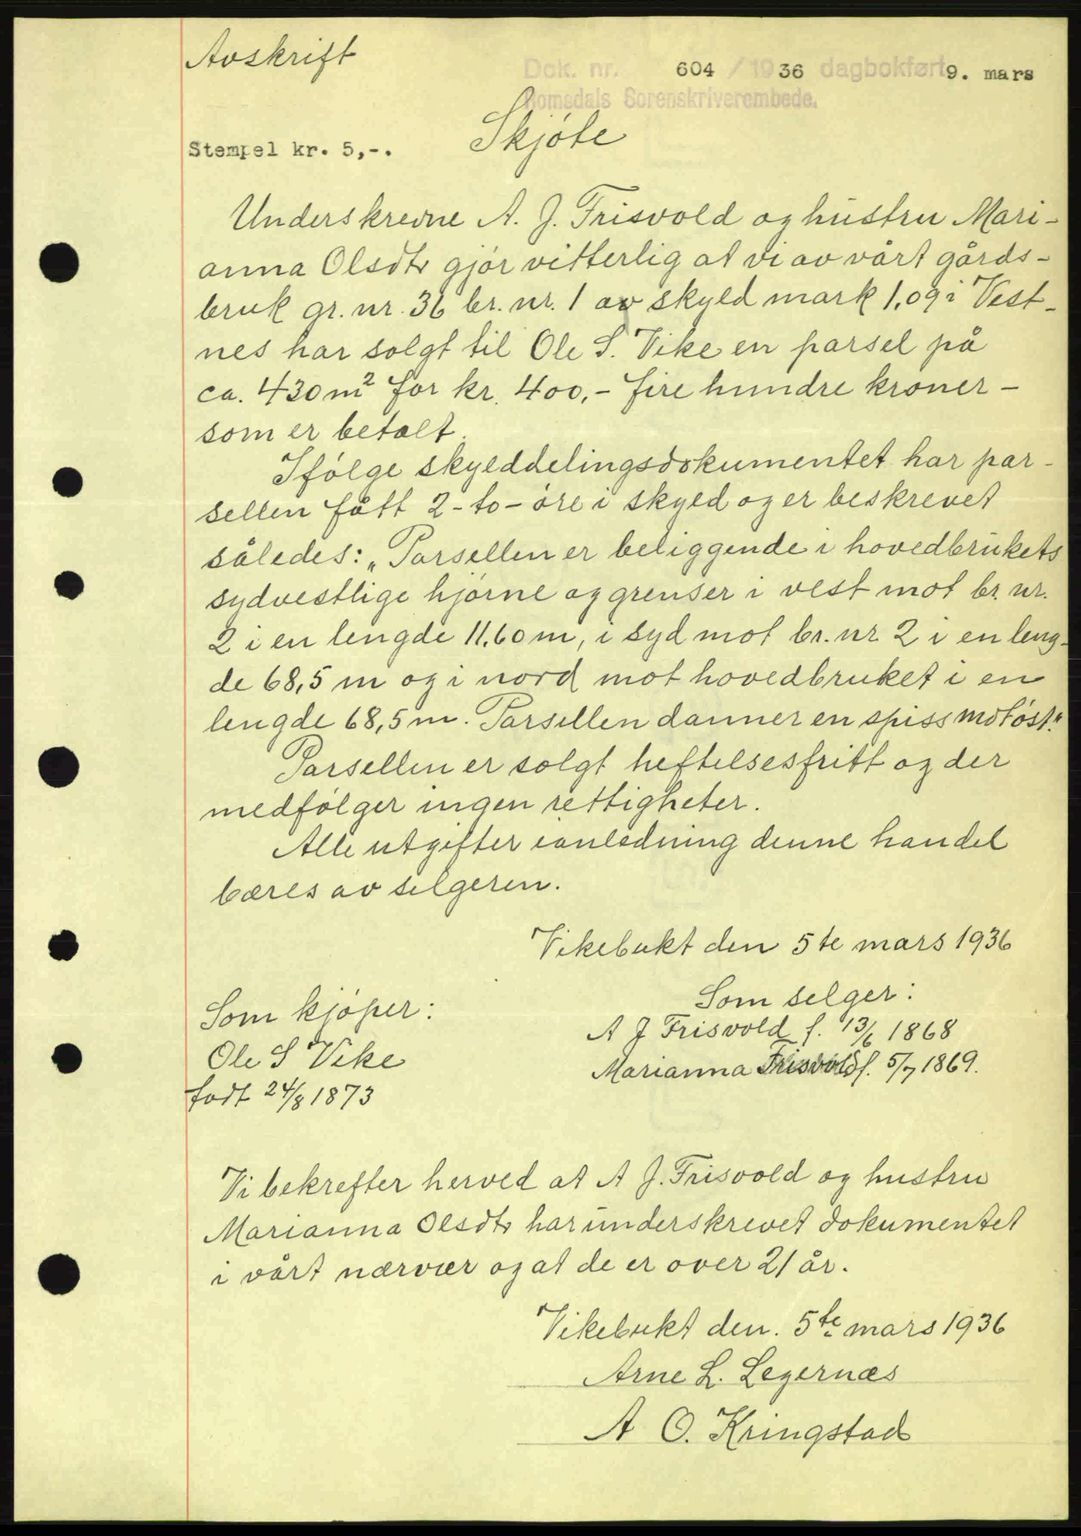 Avskrift
Dok. nr. 604 / 1936 dagbokført 9. mars
Romsdals Sorenskriverembede.
Skjøte
Stempel kr. 5,-.
Underskrevne A. J. Frisvold og hustru Mari-
anna Olsdtr gjør vitterlig at vi av vårt gårds-
bruk gr. nr. 36 br. nr. 1 av skyld mark 1,09 i Vest-
nes har solgt til Ole S. Vike en parsel på
ca. 430 m² for kr. 400,- fire hundre kroner -
som er betalt.
Ifølge skylddelingsdokumentet har par-
sellen fått 2-to-øre i skyld og er beskrevet
således: „Parsellen er beliggende i hovedbrukets
sydvestlige hjørne og grenser i vest mot br. nr.
2 i en lengde 11,60 m, i syd mot br. nr 2 i en leng-
de 68,5 m og i nord mot hovedbruket i en
lengde 68,5 m. Parsellen danner en spiss mot øst."
Parsellen er solgt heftelsesfritt og der
medfølger ingen rettigheter.
Alle utgifter ianledning denne handel
bæres av selgeren.
Vikebukt den 5te mars 1936
Som selger:
A J Frisvold f. 13/6 1868
Marianna Frisvold f. 5/7 1869.
Som kjøper:
Ole S Vike
født 24/8 1873
Vi bekrefter herved at A J. Frisvold og hustru
Marianna Olsdtr har underskrevet dokumentet
i vårt nærvær og at de er over 21 år.
Vikebukt den. 5te mars 1936
Arne L. Legernæs
A O. Kringstad